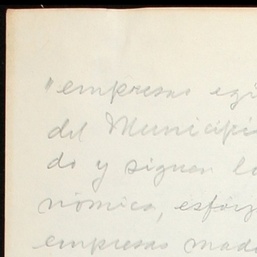 "empresas egi
del Municipi
do y siguen la
nómica, esfórz
empresas mode